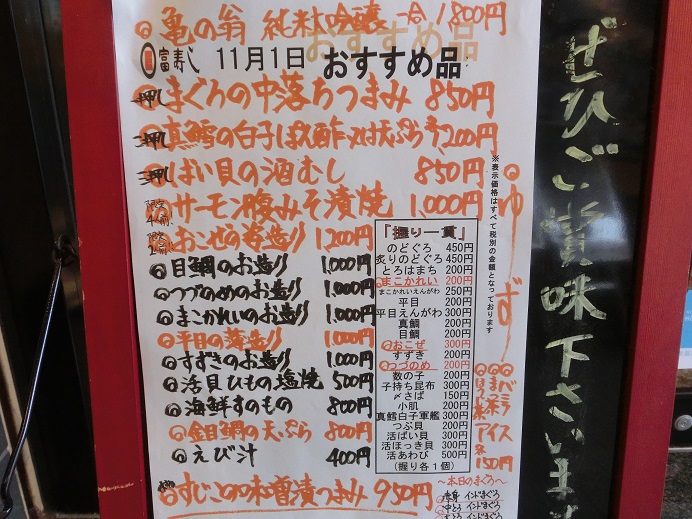 亀の翁 純米大吟醸 一合 1800円
富寿し 11月1日 おすすめ品
おすすめ品
押し まぐろの中落ちつまみ 850円
押し 真鱈の白子ぽん酢又は天ぷら 1,200円
押し ばい貝の酒むし 850円
限定 サーモン腹みそ漬焼 1,000円
限定 おこぜの姿造り 1,200円
目鯛のお造り 1,000円
つづのめのお造り 1,000円
まこかれいのお造り 1,000円
平目の薄造り 1,000円
すずきのお造り 1,000円
活貝ひもの塩焼 500円
海鮮すのもの 800円
金目鯛の天ぷら 800円
えび汁 400円
すじこの味噌漬つまみ 950円
「握り一貫」
のどぐろ 450円
炙りのどぐろ 450円
とろはまち 200円
まこかれい 200円
まこかれいえんがわ 250円
平目 200円
平目えんがわ 300円
真鯛 200円
目鯛 200円
おこぜ 300円
すずき 200円
つづのめ 200円
数の子 200円
子持ち昆布 300円
〆さば 150円
小肌 200円
真鱈白子軍艦 300円
つぶ貝 200円
活ばい貝 300円
活ほっき貝 300円
活あわび 500円
(握り各1個)
※表示価格はすべて税別の金額となっております
ゆず
バニラ
まっ茶
ほうじ茶
アイス
各150円
～本日のまぐろ～
赤身 インドまぐろ
中とろ インドまぐろ
大とろ インドまぐろ
ぜひご賞味下さいま